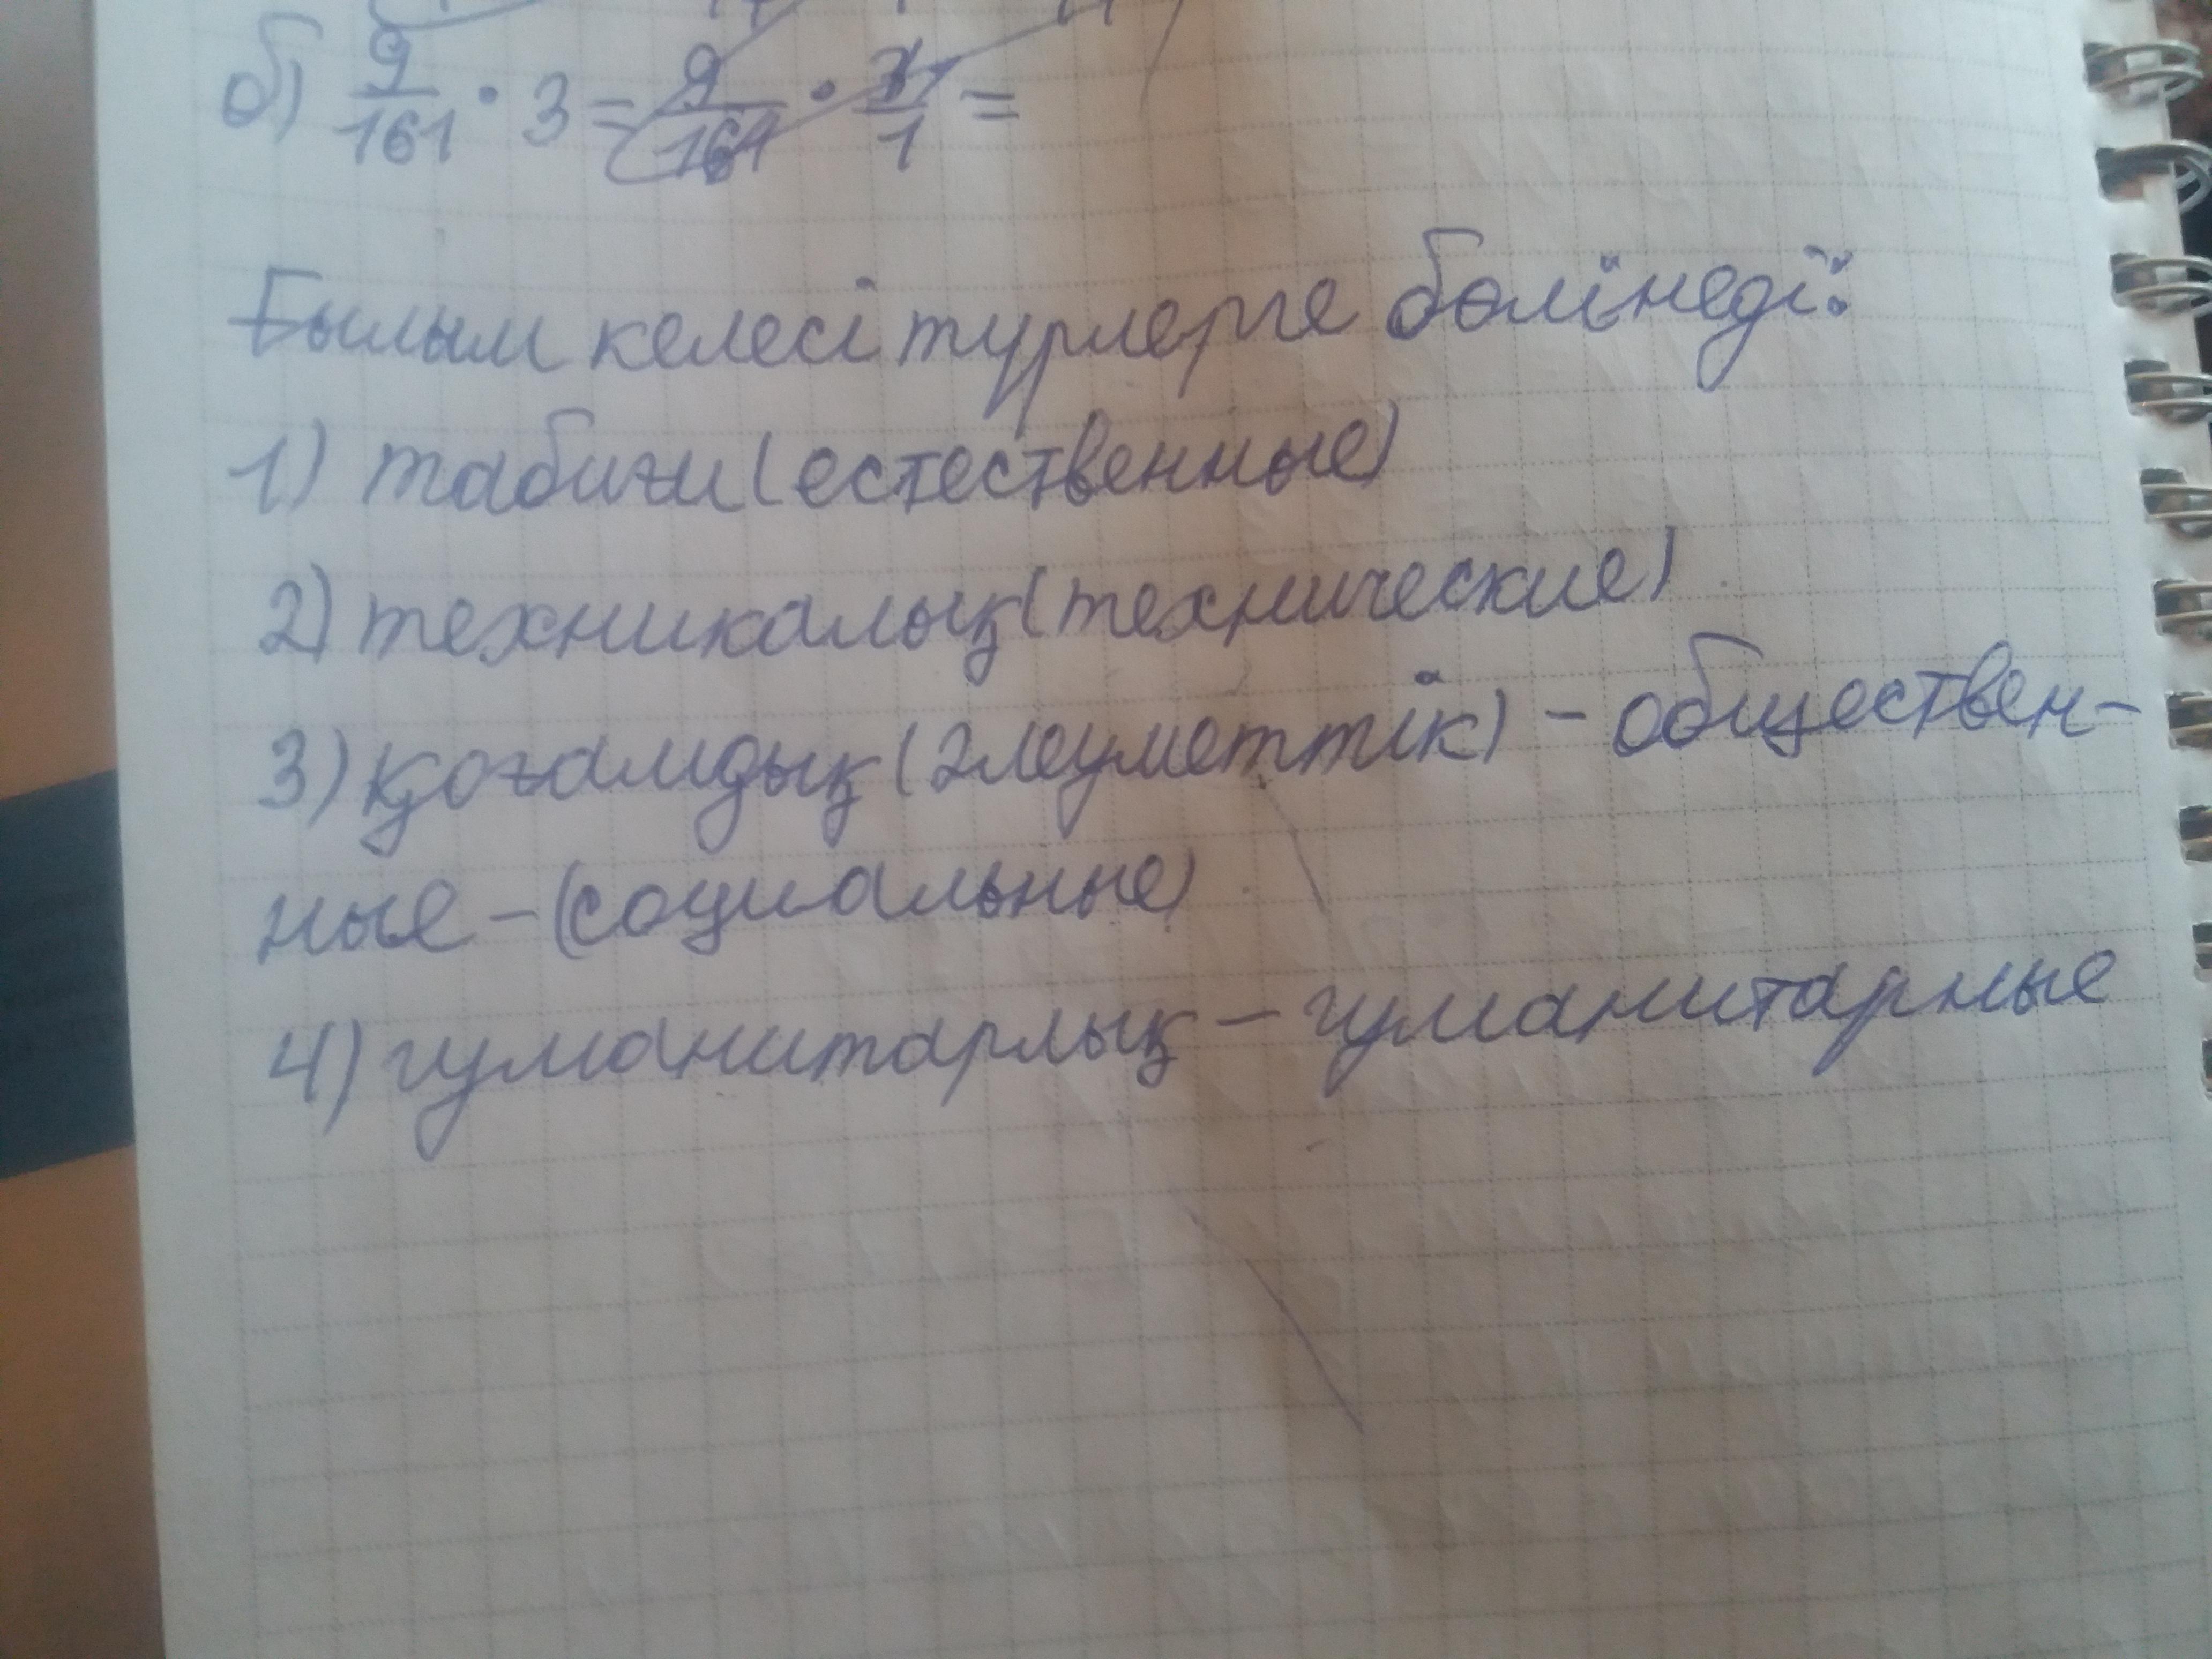 б) 9/161 · 3 = 9/161 · 3/1 =
Ғылым келесі түрлерге бөлінеді:
1) табиғи (естественные)
2) техникалық (технические)
3) қоғамдық (әлеуметтік) - обществен-
ные - (социальные)
4) гуманитарлық - гуманитарные